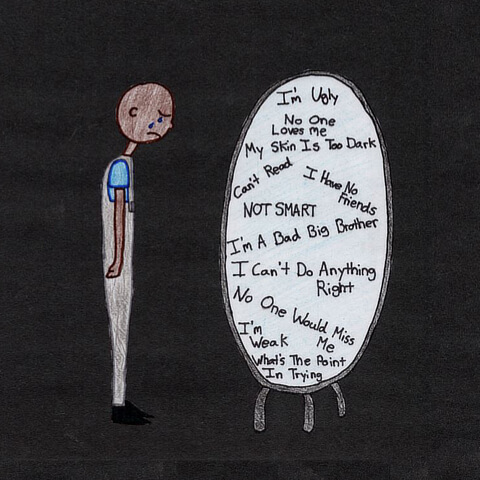 I'm Ugly
No One
Loves me
My Skin Is Too Dark
Can't Read
I Have No
Friends
NOT SMART
I'm A Bad Big Brother
I Can't Do Anything
Right
No One Would Miss
Me
I'm
Weak
What's The Point
In Trying